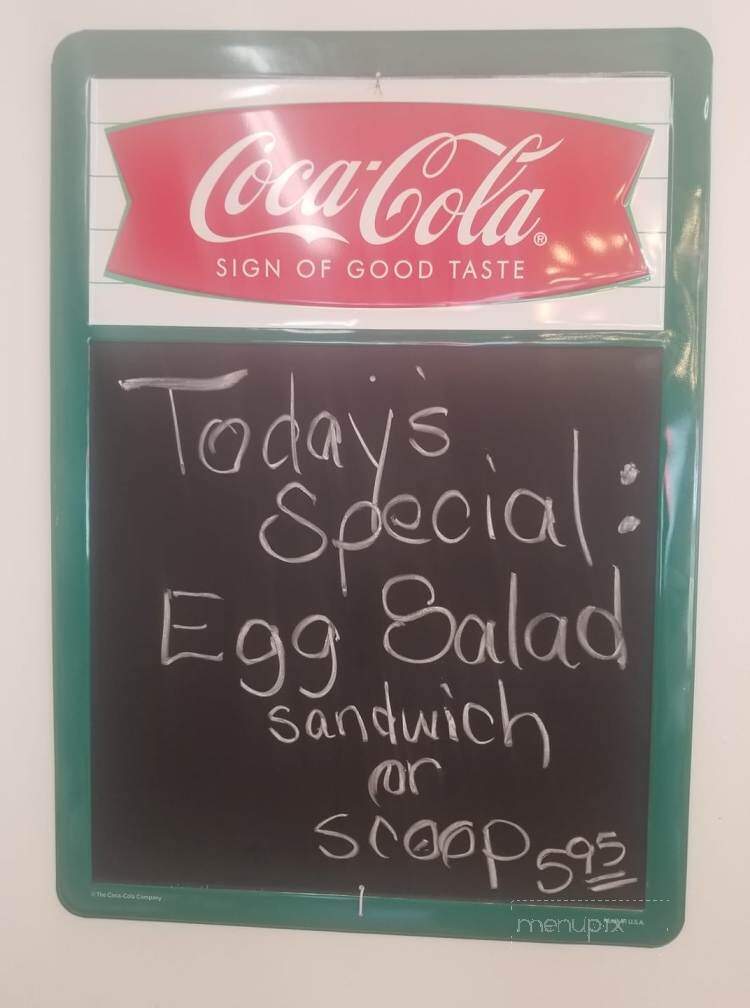 Coca-Cola®
SIGN OF GOOD TASTE
Today's
Special:
Egg Salad
sandwich
or
scoop 5.95
© The Coca-Cola Company
menupix